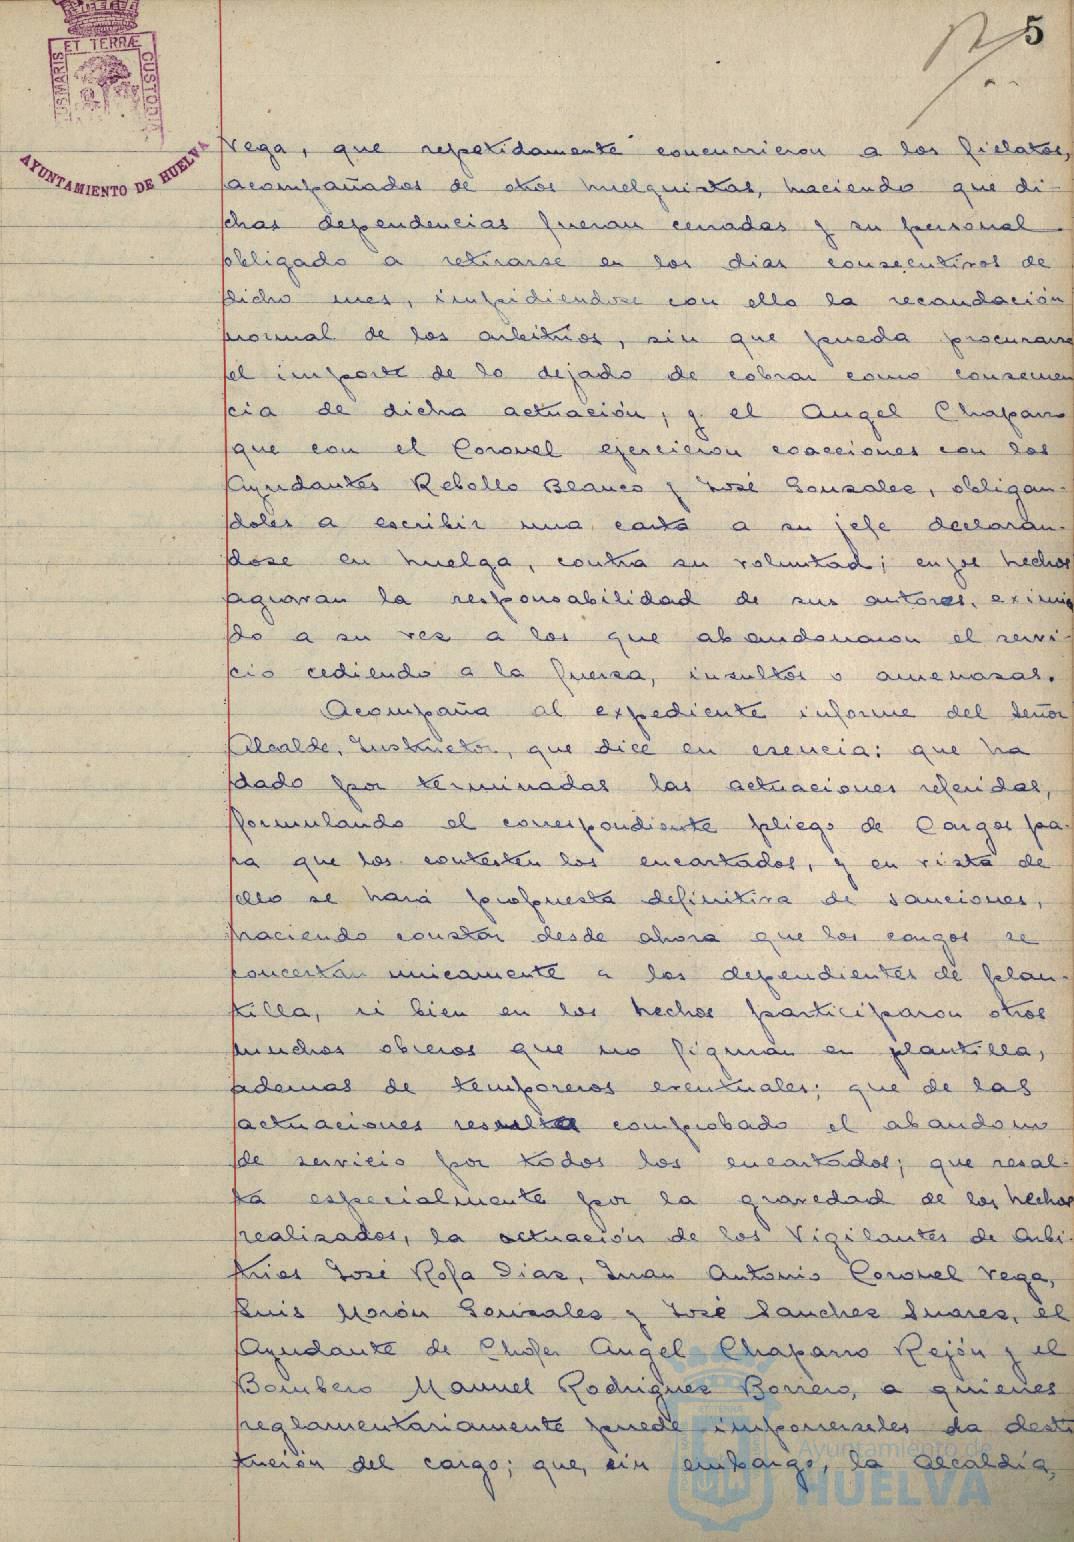 5
ET TERRÆ
CUSTODIA
AYUNTAMIENTO DE HUELVA
Vega, que repetidamente concurrieron a los fielatos,
acompañados de otros huelguistas, haciendo que di-
chas dependencias fueran cerradas y su personal
obligado a retirarse en los dias consecutivos de
dicho mes, impidiendose con ello la recaudación
normal de los arbitrios, sin que pueda procurarse
el importe de lo dejado de cobrar como consecuen
cia de dicha actuación; y el Angel Chaparro
que con el Coronel ejercieron coacciones con los
Ayudantes Rebollo Blanco y José Gonzalez, obligan-
doles a escribir una carta a su jefe declarán-
dose en huelga, contra su voluntad; cuyos hechos
agravan la responsabilidad de sus autores, eximien
do a su vez a los que abandonaron el servi-
cio cediendo a la fuerza, insultos o amenazas.
Acompaña al expediente informe del Señor
Alcalde, Instructor, que dice en esencia: que ha
dado por terminadas las actuaciones referidas,
formulando el correspondiente pliego de Cargos pa-
ra que los contesten los encartados, y en vista de
ello se hará propuesta definitiva de sanciones,
haciendo constar desde ahora que los cargos se
concertan unicamente a los dependientes de plan-
tilla, si bien en los hechos participaron otros
muchos obreros que no figuran en plantilla,
ademas de temporeros eventuales; que de las
actuaciones resulta comprobado el abandono
de servicio por todos los encartados; que resal-
ta especialmente por la gravedad de los hechos
realizados, la actuación de los Vigilantes de Arbi-
trios José Rofa Diaz, Juan Antonio Coronel Vega,
Luis Morón Gonzales y José Sanchez Suares, el
Ayudante de Chofer Angel Chaparro Rejón y el
Bombero Manuel Rodriguez Borrero, a quienes
reglamentariamente puede imponerseles la desti
tución del cargo; que, sin embargo, la Alcaldía,
Ayuntamiento de
HUELVA